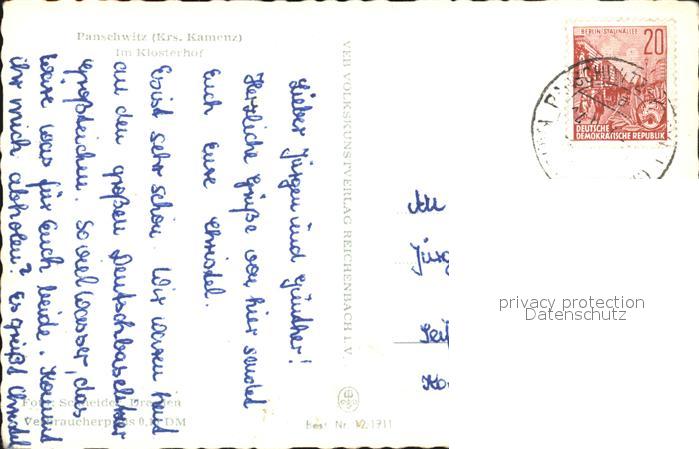 Panschwitz (Krs. Kamenz)
Im Klosterhof
Lieber Jürgen und Günther!
Herzliche Grüße von hier sendet
Euch Eure Christel.
Es ist sehr schön. Wir waren heut
an den großen Deutschbaselitzer
Großteichen. So viel Wasser, das
wäre was für Euch beide. Kommt
ihr mich abholen? Es grüßt Christel
Foto: Schneider, Dresden
Verbraucherpreis 0, DM
VEB VOLKSKUNSTVERLAG REICHENBACH I. V.
Best. Nr. 12.1711
BERLIN STALINALLEE
20
DEUTSCHE
DEMOKRATISCHE REPUBLIK
An
Jürg
privacy protection
Datenschutz